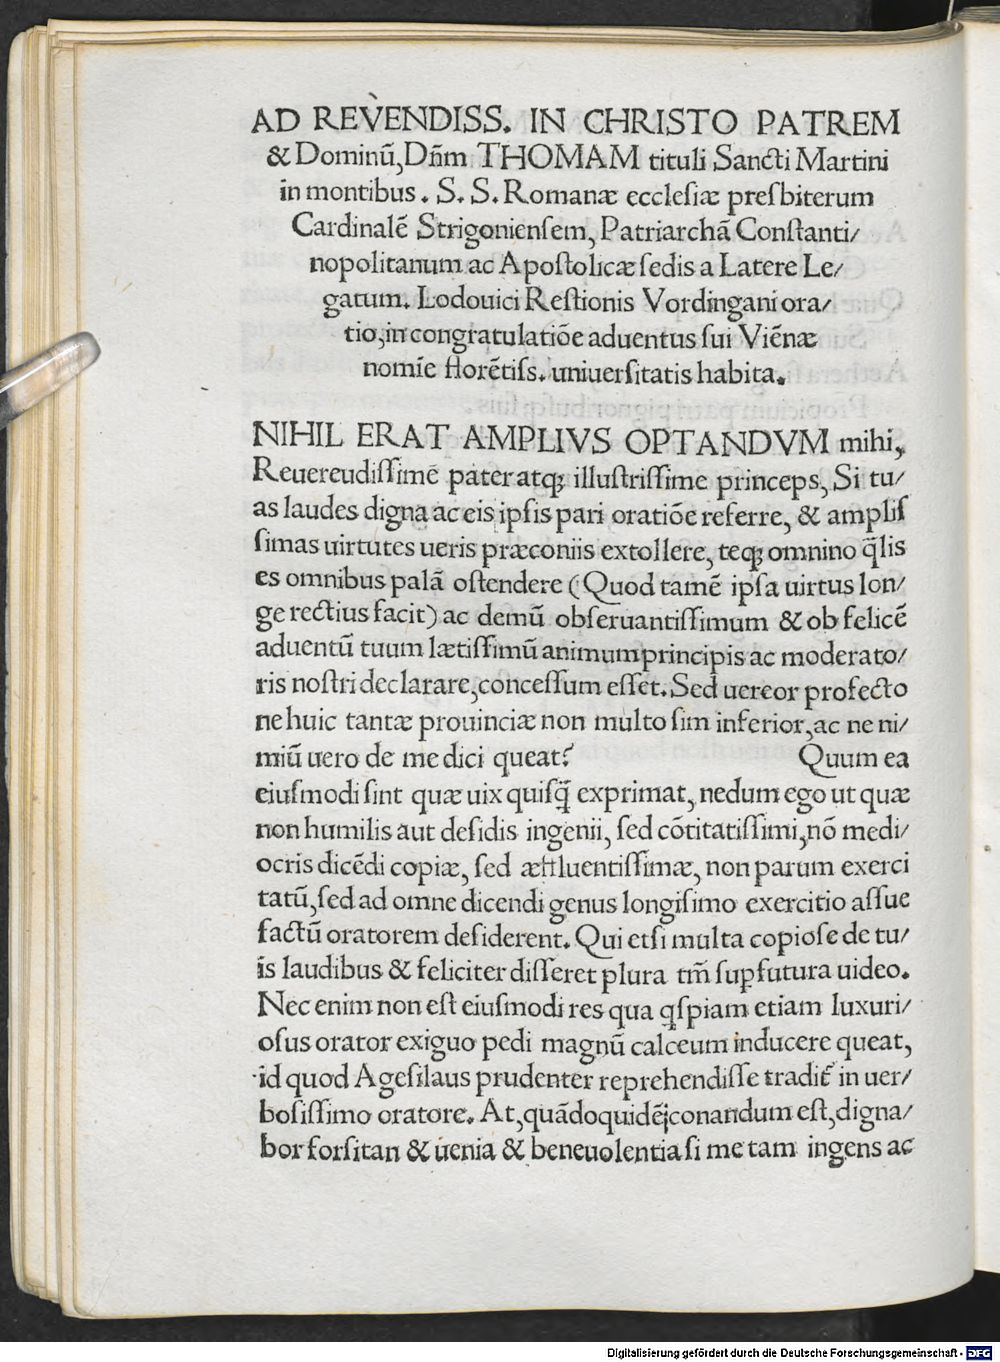 AD REV̀ENDISS. IN CHRISTO PATREM
& Dominū, Dn̄m THOMAM tituli Sancti Martini
in montibus. S. S. Romanæ ecclesiæ presbiterum
Cardinalē Strigoniensem, Patriarchā Constanti/
nopolitanum ac Apostolicæ sedis a Latere Le/
gatum. Lodouici Restionis Vordingani ora/
tio, in congratulatiōe aduentus sui Viēnæ
nomīe florētiss. uniuersitatis habita.
NIHIL ERAT AMPLIVS OPTANDVM mihi,
Reuereudissimē pater atqꝫ illustrissime princeps, Si tu/
as laudes digna ac eis ipsis pari oratiōe referre, & amplis
simas uirtutes ueris præconiis extollere, teqꝫ omnino q̄lis
es omnibus palā ostendere (Quod tamē ipsa uirtus lon/
ge rectius facit) ac demū obseruantissimum & ob felicē
aduentū tuum lætissimū animum principis ac moderato/
ris nostri declarare, concessum esset. Sed uereor profecto
ne huic tantæ prouinciæ non multo sim inferior, ac ne ni/
miū uero de me dici queat? Quum ea
eiusmodi sint quæ uix quisq̄ exprimat, nedum ego ut quæ
non humilis aut desidis ingenii, sed cōtitatissimi, nō medi/
ocris dicēdi copiæ, sed æffluentissimæ, non parum exerci
tatū, sed ad omne dicendi genus longisimo exercitio assue
factū oratorem desiderent. Qui etsi multa copiose de tu/
is laudibus & feliciter disseret plura tm̄ suꝑfutura uideo.
Nec enim non est eiusmodi res qua qͥspiam etiam luxuri/
osus orator exiguo pedi magnū calceum inducere queat,
id quod Agesilaus prudenter reprehendisse tradit᷑ in uer/
bosissimo oratore. At, quādoquidē conandum est, digna/
bor forsitan & uenia & beneuolentia si me tam ingens ac
Digitalisierung gefördert durch die Deutsche Forschungsgemeinschaft - DFG